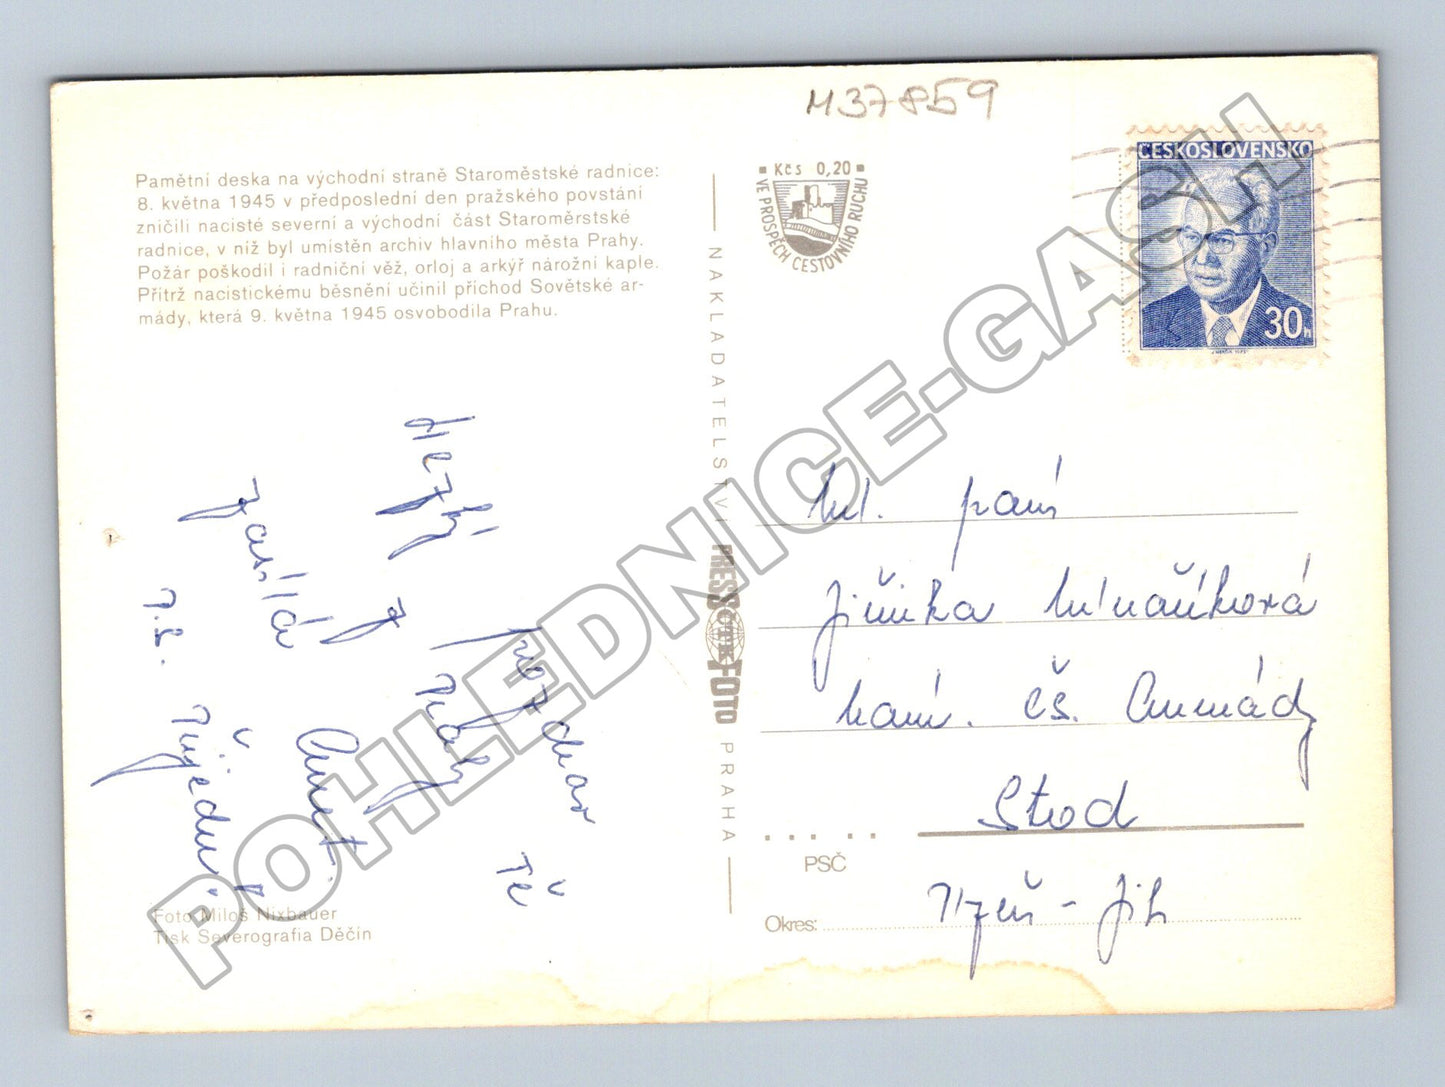 M37859
Pamětní deska na východní straně Staroměstské radnice:
8. května 1945 v předposlední den pražského povstání
zničili nacisté severní a východní část Staroměrstské
radnice, v níž byl umistěn archiv hlavního města Prahy.
Požár poškodil i radniční věž, orloj a arkýř nárožní kaple.
Přítrž nacistickému běsnění učinil příchod Sovětské ar-
mády, která 9. května 1945 osvobodila Prahu.
Hezký pozdrav
z Prahy Tě
zasílá
P.S. Přijedu!
Foto Miloš Nixbauer
Tisk Severografia Děčín
NAKLADATELSTVÍ PRESSFOTO PRAHA
ČTK
Kčs 0,20
VE PROSPĚCH CESTOVNÍHO RUCHU
ČESKOSLOVENSKO
30h
Ml. paní
Jiřinka Mlnaříková
nám. čs. Armády
Stod
PSČ
Okres: Plzeň - jih
POHLEDNICE-GASH